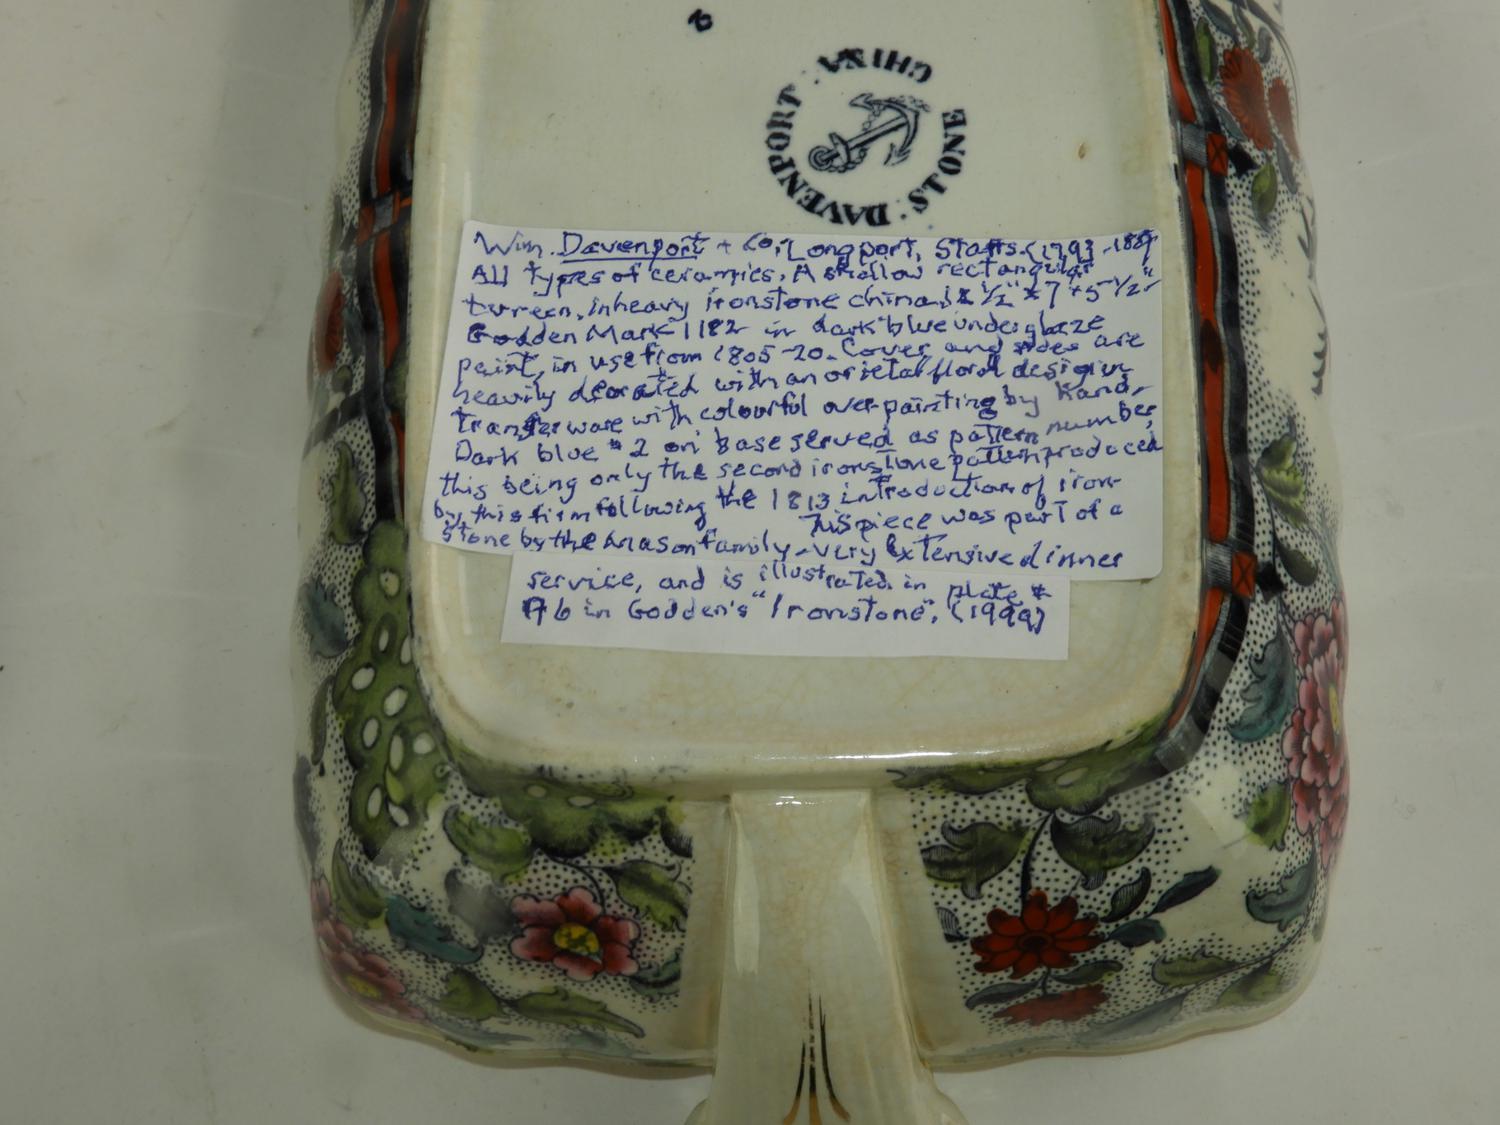 2
DAVENPORT · DAVENPORT · STONE CHINA ·
Wm. Davenport + Co., Longport, Staffs. (1793-1887)
All types of ceramics. A shallow rectangular
tureen, in heavy ironstone china, 12 1/2" x 7 x 5 1/2"
Godden Mark 1182 in dark blue underglaze
paint, in use from 1805-20. Cover and sides are
heavily decorated with an orietal floral design in
Transfer ware with colourful over-painting by hand.
Dark blue #2 on base served as pattern number,
this being only the second ironstone pattern produced
by this firm following the 1813 introduction of iron-
stone by the Mason family. This piece was part of a
very extensive dinner
service, and is illustrated in plate #
A6 in Godden's "Ironstone", (1999)